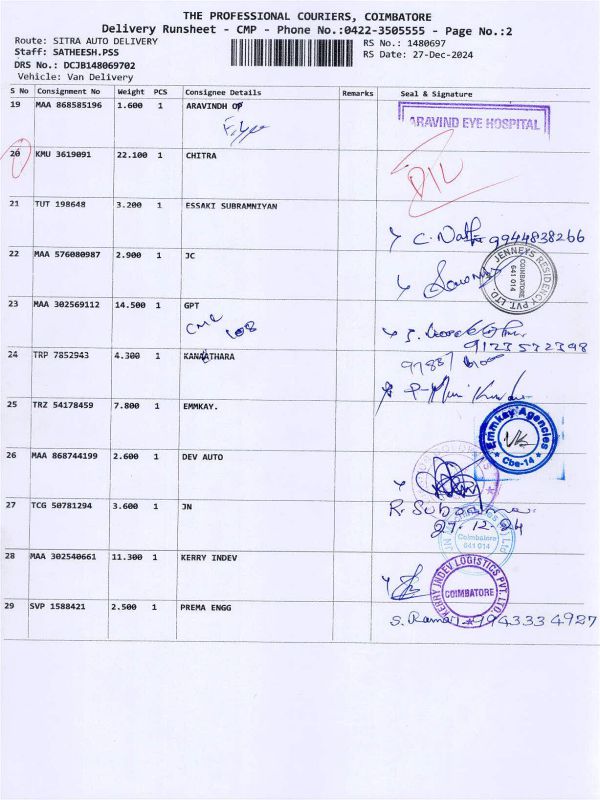 THE PROFESSIONAL COURIERS, COIMBATORE
Delivery Runsheet - CMP - Phone No.:0422-3505555 - Page No.:2
Route: SITRA AUTO DELIVERY
RS No.: 1480697
Staff: SATHEESH.PSS
RS Date: 27-Dec-2024
DRS No.: DCJB148069702
Vehicle: Van Delivery
S No Consignment No Weight PCS Consignee Details Remarks Seal & Signature
19 MAA 868585196 1.600 1 ARAVINDH OP
ARAVIND EYE HOSPITAL
20 KMU 3619091 22.100 1 CHITRA
DIL
21 TUT 198648 3.200 1 ESSAKI SUBRAMNIYAN
9944838266
22 MAA 576080987 2.900 1 JC
JENNEYS RESIDENCY PVT. LTD.
COIMBATORE
641 014
23 MAA 302569112 14.500 1 GPT
9123572398
24 TRP 7852943 4.300 1 KANAATHARA
25 TRZ 54178459 7.800 1 EMMKAY.
Emmkay Agencies
Cbe-14
26 MAA 868744199 2.600 1 DEV AUTO
27 TCG 50781294 3.600 1 JN
27.12.24
Coimbatore
641 014
28 MAA 302540661 11.300 1 KERRY INDEV
KERRY INDEV LOGISTICS PVT. LTD.
COIMBATORE
29 SVP 1588421 2.500 1 PREMA ENGG
S. Raman 9943334927